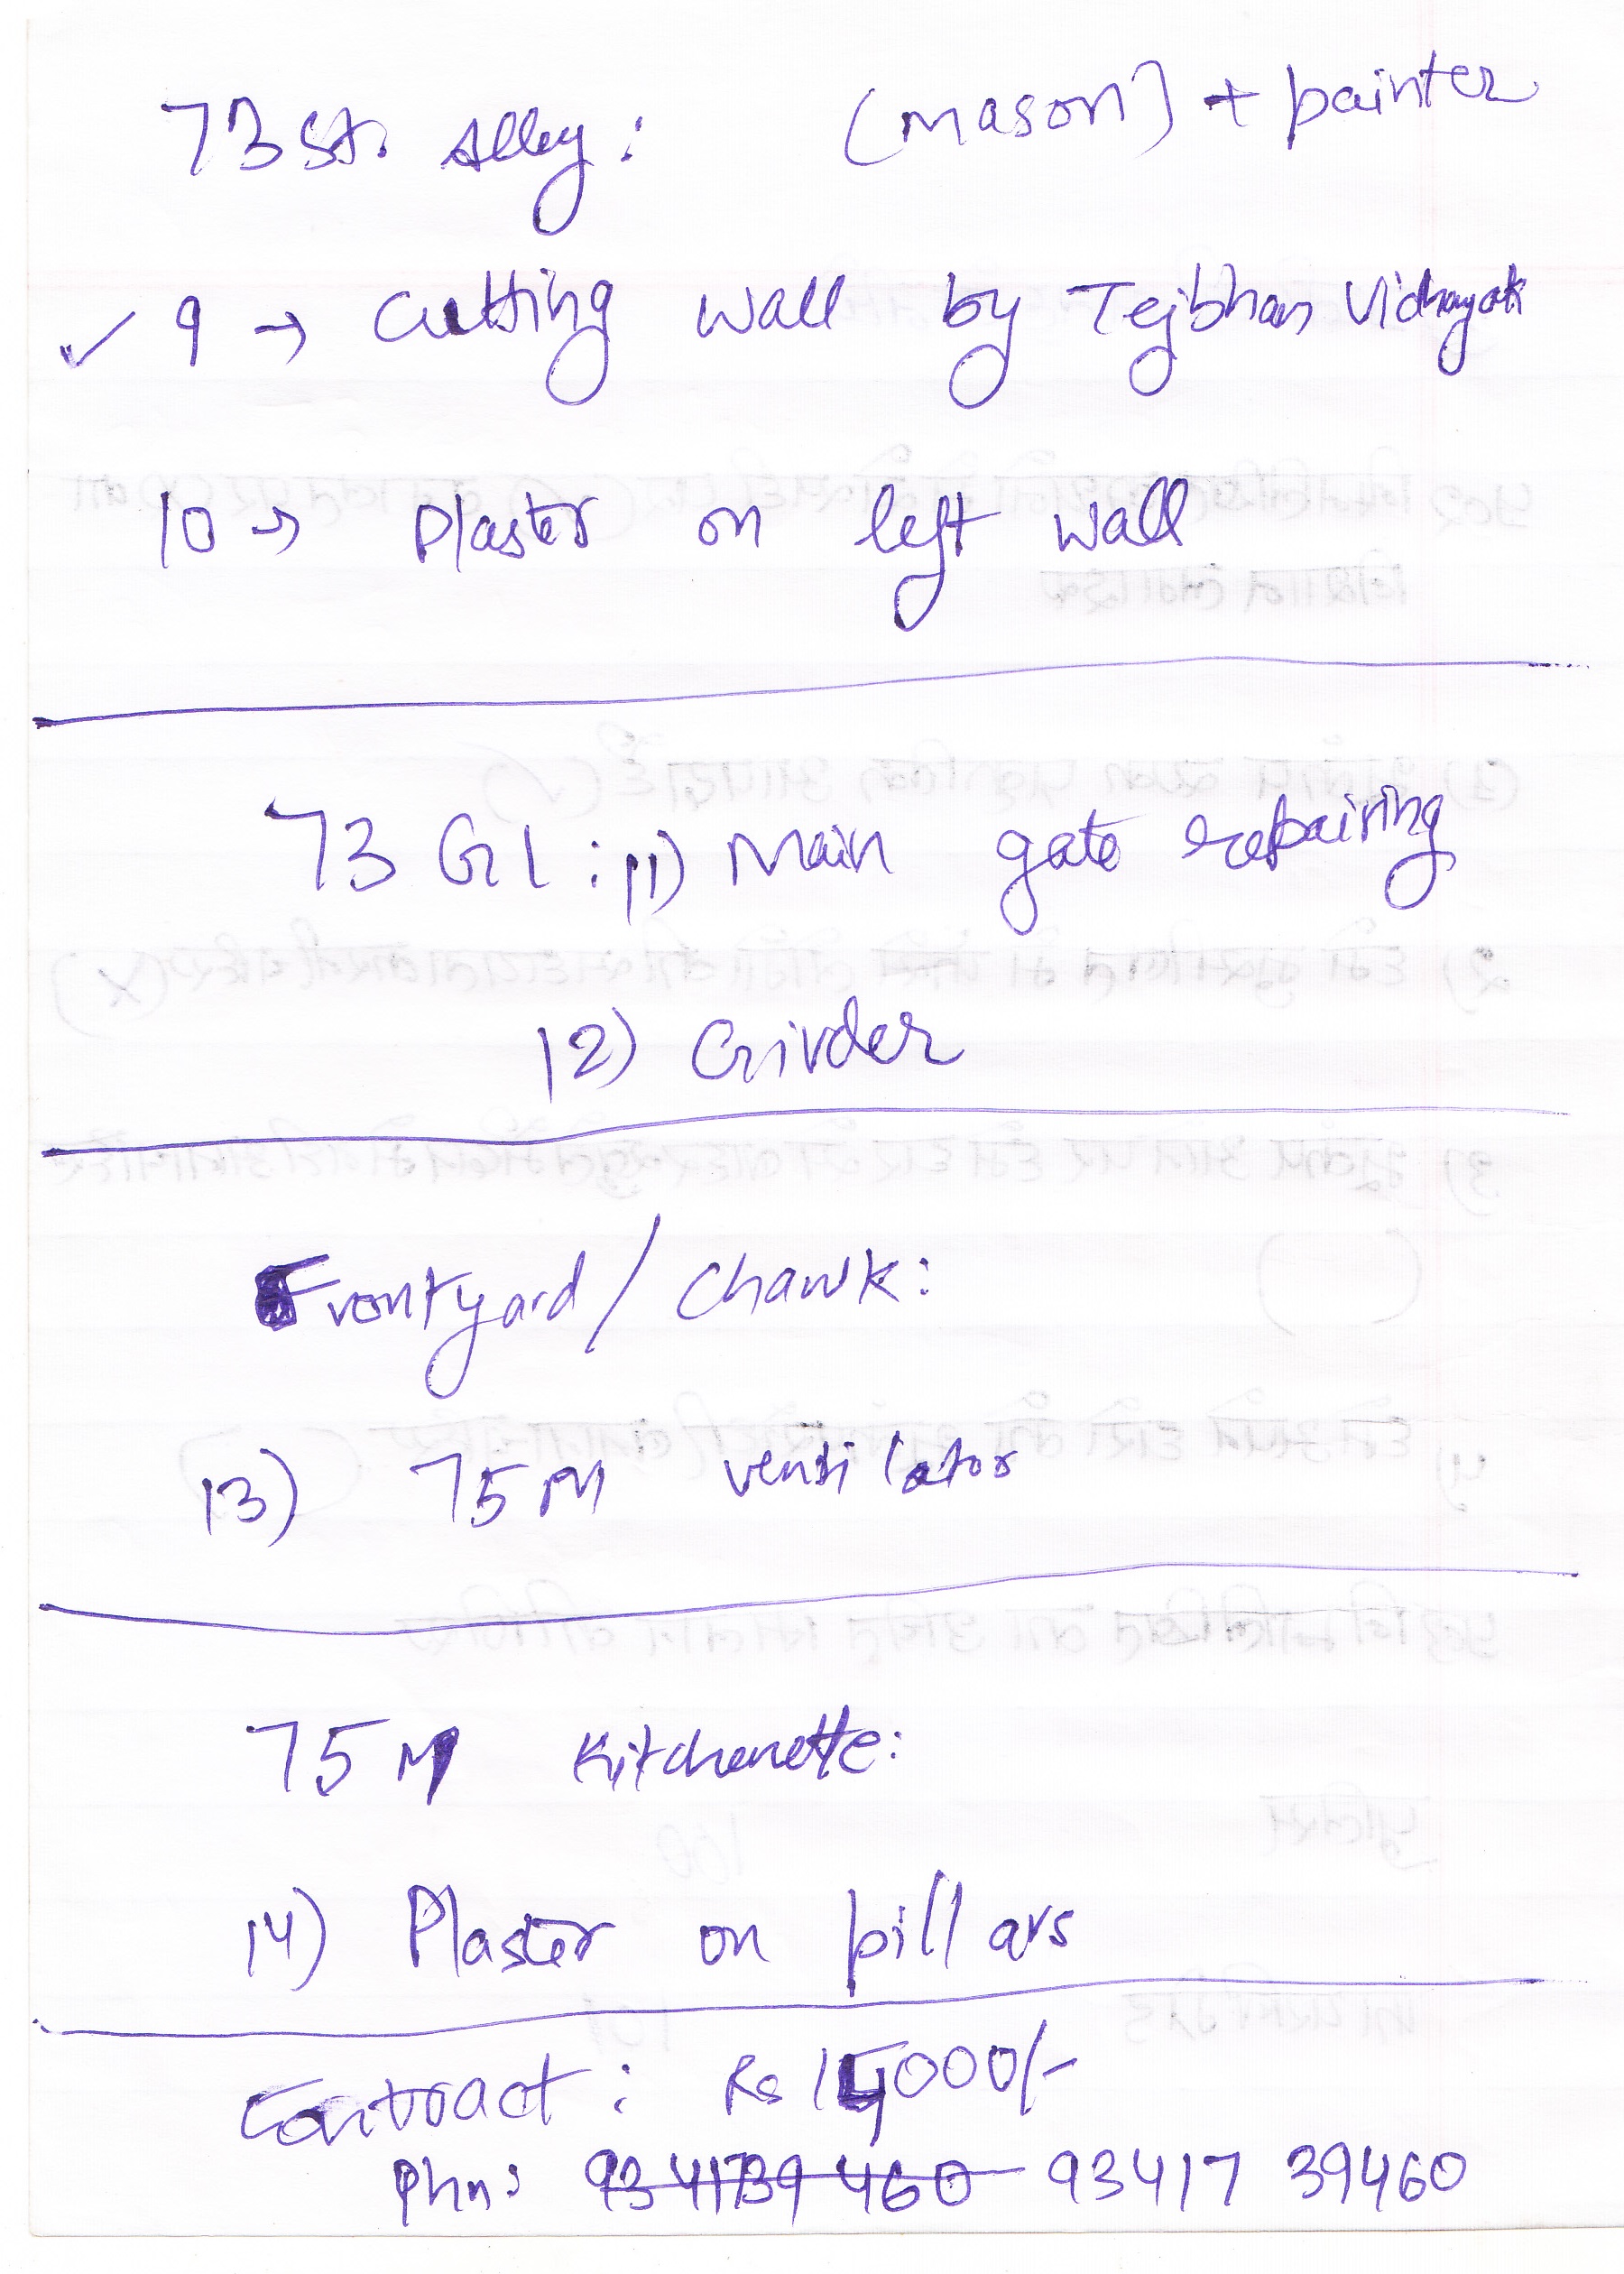 73 St. Alley: (mason) + painter
✓ 9 → Cutting wall by Tejbhan Vidhayak
10 → Plaster on left wall
73 G1 : 11) Main gate repairing
12) Girder
Frontyard / Chawk:
13) 75 M ventilator
75 M Kitchenette:
14) Plaster on pillars
Contract : Rs 000/-
Phn: 9341739460 93417 39460